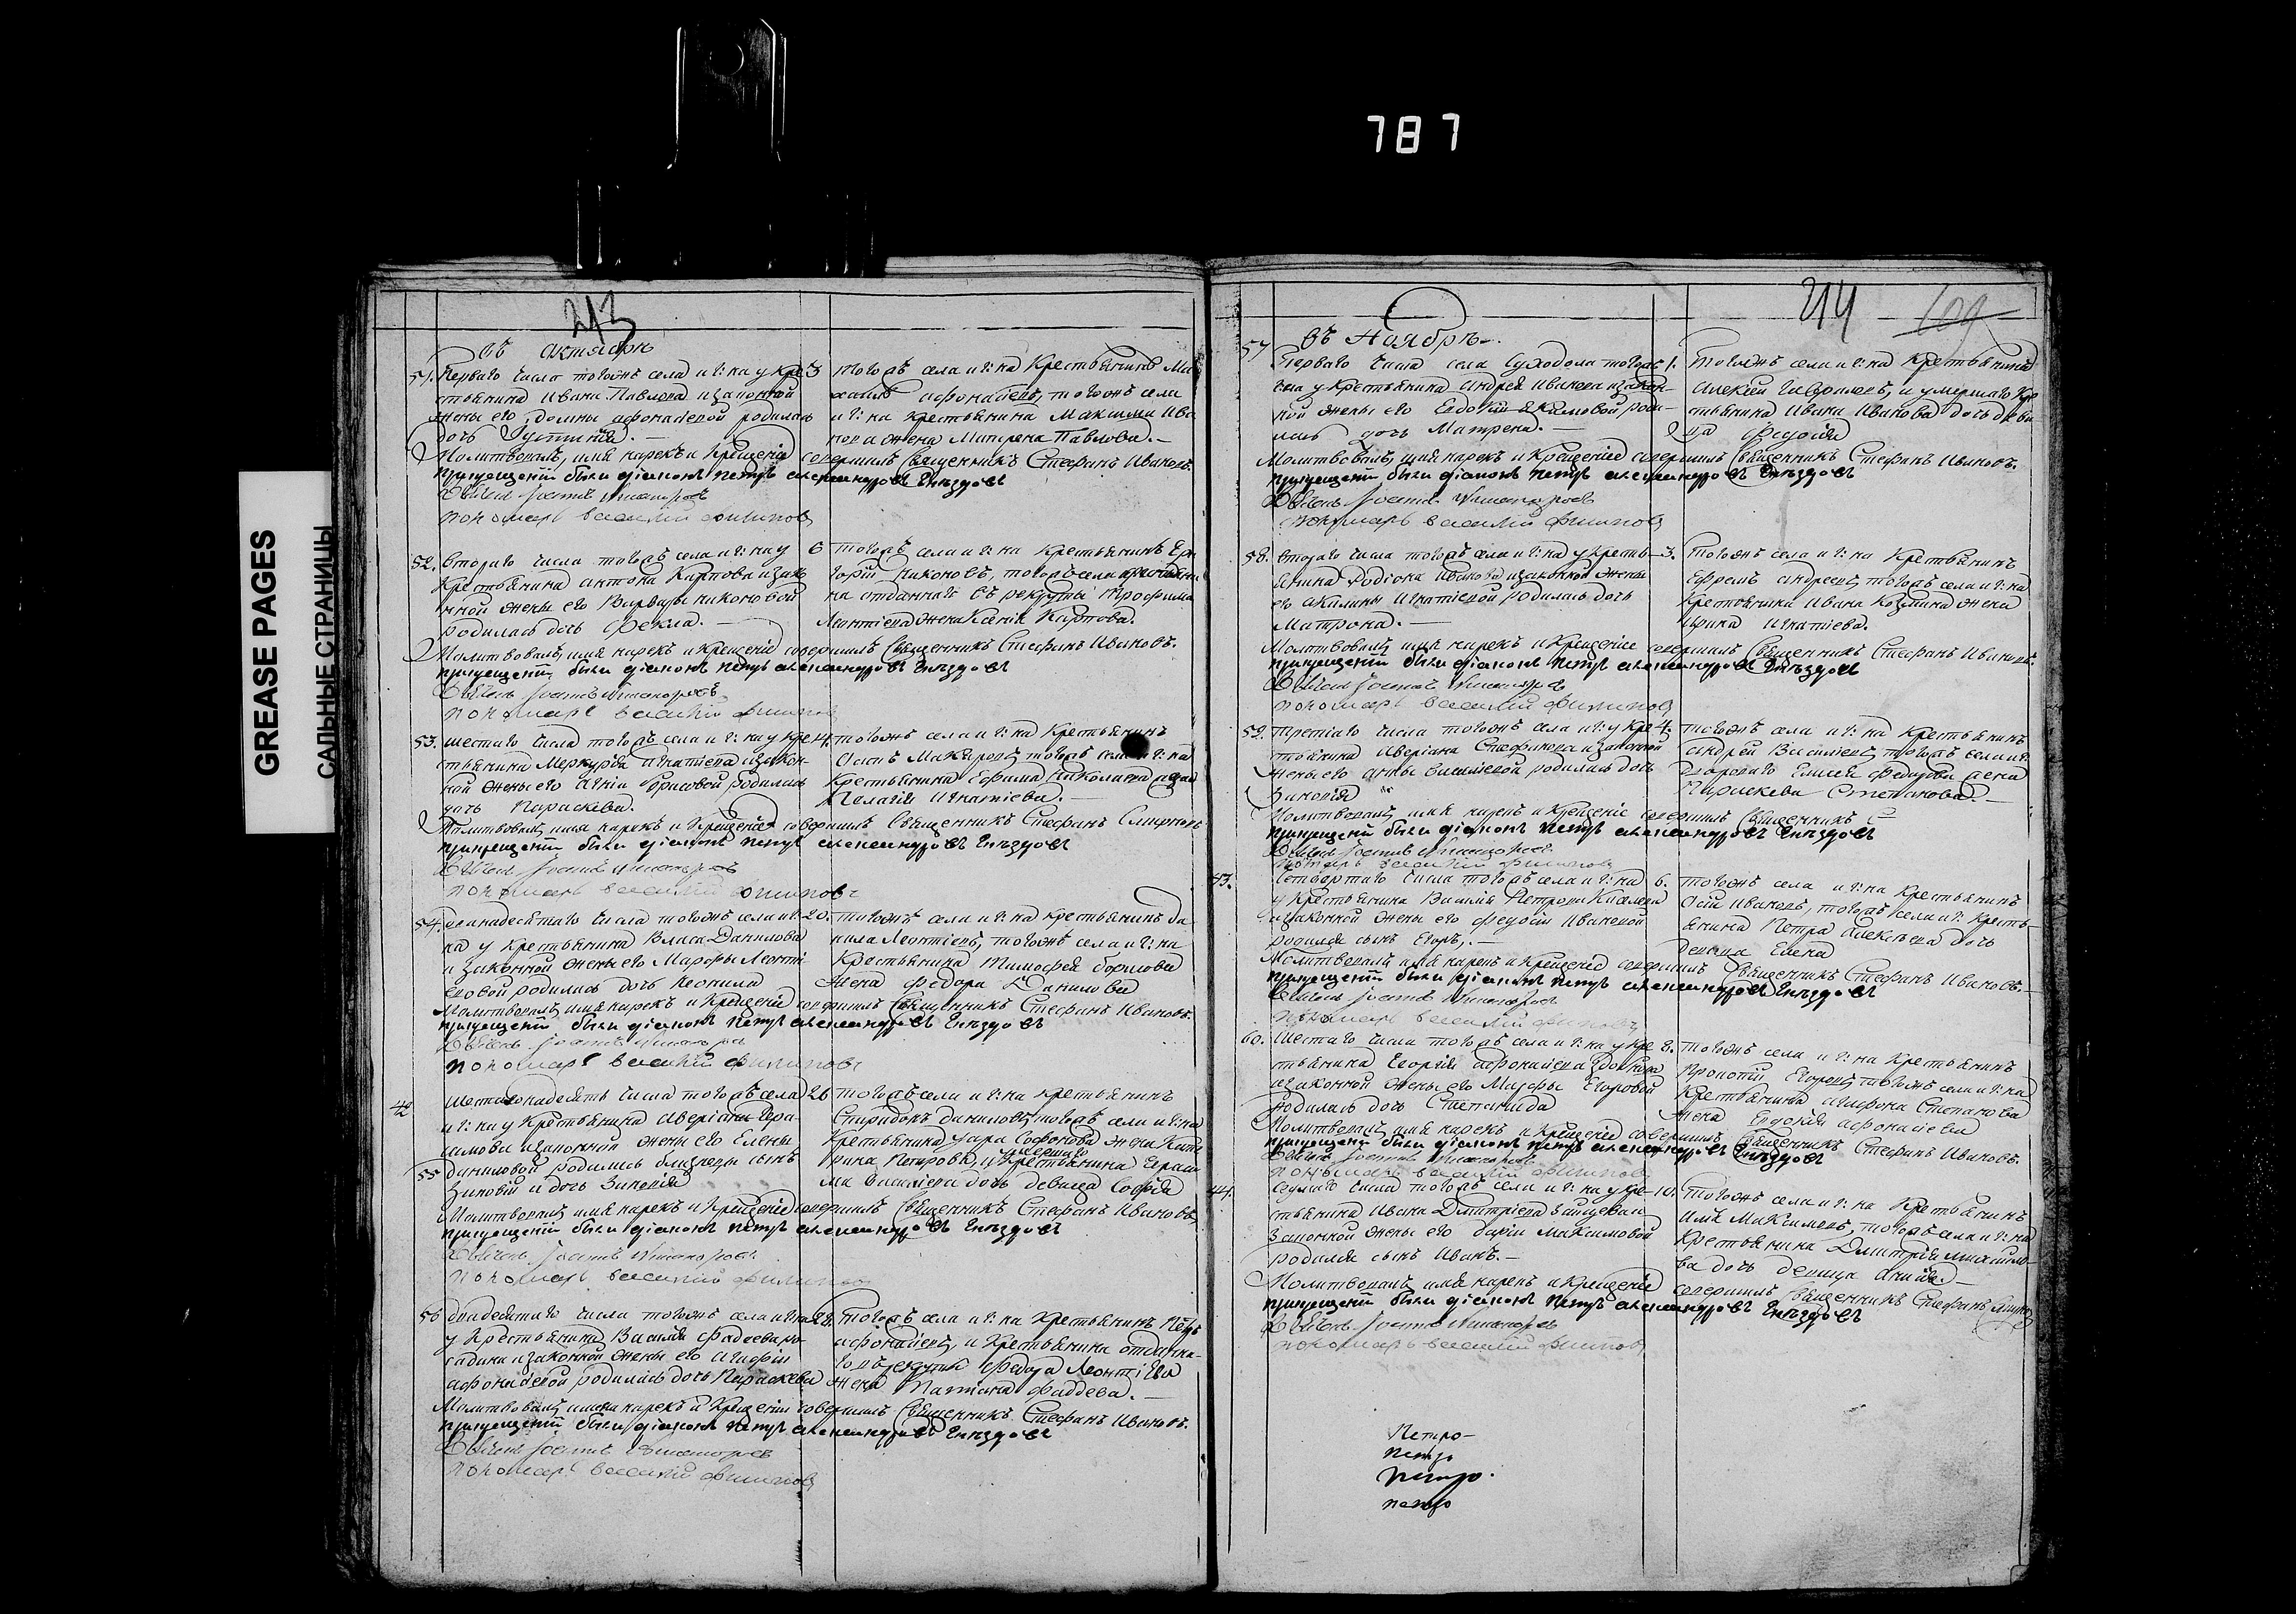 787
GREASE PAGES
САЛЬНЫЕ СТРАНИЦЫ
243
въ октябрѣ
51. Перваго числа тогожъ села и г: на у кре 3
стьянина Ивана Павлова и законной
жены его Домны Афонасіевой родилась
дочь Устинія. —
тогожъ села и г: на Крестьянинъ Ми
хаилъ Афонасіевъ, тогожъ села
и г: на крестьянина Максима Ива
нова жена Матрена Павлова. —
Молитвовалъ, имя нарекъ и Крещеніе совершилъ Священникъ Стефанъ Ивановъ.
прикрещеніи были діаконъ Петръ Александровъ Гнѣздовъ
пономарь Василий Филипов
52. Втораго числа тогожъ села и г: на у 6
Крестьянина Антона Карпова и зако
нной жены его Варвары Никоновой
родилась дочь Фекла. —
тогожъ села и г: на Крестьянинъ Гри
горій Никоновъ, тогожъ села крестьяни
на отданнаго въ рекруты Трофима
Леонтіева жена Ксенія Карпова.
Молитвовалъ, имя нарекъ и Крещеніе совершилъ Священникъ Стефанъ Ивановъ.
прикрещеніи были діаконъ Петръ Александровъ Гнѣздовъ
пономарь Василий Филипов
53. Шестаго числа тогожъ села и г: на у кре 14.
стьянина Меркурія Игнатіева и закон-
ной жены его Агніи Борисовой родилась
дочь Параскева.
тогожъ села и г: на Крестьянинъ
Осипъ Макаровъ, тогожъ села и г: на
Крестьянина Ефима Николаева
Пелагія Игнатіева. —
Молитвовалъ имя нарекъ и Крещеніе совершилъ Священникъ Стефанъ
прикрещеніи были діаконъ Петръ Александровъ Гнѣздовъ
пономарь Василий Филипов
54. тогожъ села и г: 20.
на у крестьянина Власа Данилова
и законной жены его Марфы Леонті
евой родилась дочь Неонила
тогожъ села и г: на крестьянинъ Да
нила Леонтіевъ, тогожъ села и г: на
Крестьянина Тимофея Борисова
жена Федора Данилова
Молитвовалъ имя нарекъ и Крещеніе совершилъ Священникъ Стефанъ Ивановъ.
прикрещеніи были діаконъ Петръ Александровъ Гнѣздовъ
пономарь Василий Филипов
42
55
Шестагонадесять числа тогожъ села 26
и г: на у Крестьянина Аверіана Гера-
симова и законной жены его Елены
Даниловой родились близнецы сынъ
Зиновій и дочь Зиновія
тогожъ села и г: на Крестьянинъ
Спиридонъ Даниловъ, тогожъ села и г: на
Крестьянина Уара Софонова жена Кате
рина Петрова, и умершаго Крестьянина Гераси
ма Василіева дочь девица Софія
Молитвовалъ имя нарекъ и Крещеніе совершилъ Священникъ Стефанъ Ивановъ
прикрещеніи были діаконъ Петръ Александровъ Гнѣздовъ
пономарь Василий Филипов
56 Двадесятаго числа тогожъ села и г: на 22.
у Крестьянина Василія Фадеева
и законной жены его Агафіи
Афонасіевой родилась дочь Параскева
тогожъ села и г: на Крестьянинъ Петръ
Афонасіевъ, и Крестьянина отданна-
го въ рекруты Федора Леонтіева
жена Татіана Фаддева. —
Молитвовалъ имя нарекъ и Крещеніе совершилъ Священникъ Стефанъ Ивановъ.
прикрещеніи были діаконъ Петръ Александровъ Гнѣздовъ
пономарь Василий Филипов
244
109
въ Ноябрѣ
57 Перваго числа села Суходола тогожъ 1.
у Крестьянина Андрея Иванова и закон-
ной жены его Евдокіи Якимовой роди-
лась дочь Матрена. —
тогожъ села и г: на Крестьянинъ
Алексѣй Гавриловъ, и умершаго Кре
стьянина Ивана Иванова дочь деви
ца Федосія
Молитвовалъ, имя нарекъ и Крещеніе совершилъ Священникъ Стефанъ Ивановъ.
прикрещеніи были діаконъ Петръ Александровъ Гнѣздовъ
пономарь Василий Филипов
58. Втораго числа тогожъ села и г: на у Кресть- 3.
янина Родіона Иванова и законной жены
его Акилины Игнатіевой родилась дочь
Матрона. —
тогожъ села и г: на Крестьянинъ
Ефремъ Андреевъ, тогожъ села и г: на
Крестьянина Ивана Козмина жена
Ирина Игнатіева.
Молитвовалъ имя нарекъ и Крещеніе совершилъ Священникъ Стефанъ Ивановъ.
прикрещеніи были діаконъ Петръ Александровъ Гнѣздовъ
пономарь Василий Филипов
59. Третіаго числа тогожъ села и г: у Кре 4.
стьянина Аверіана Стефанова и законной
жены его Анны Василіевой родилась дочь
Зиновія
тогожъ села и г: на Крестьянинъ
Андрей Василіевъ, тогожъ села и г:
двороваго Елисея Федорова жена
Параскева Степанова. —
Молитвовалъ имя нарекъ и Крещеніе совершилъ Священникъ С
прикрещеніи были діаконъ Петръ Александровъ Гнѣздовъ
пономарь Василий Филипов
43. Четвертаго числа тогожъ села и г: на 6.
у Крестьянина Василія Петрова Киселева
и законной жены его Федосіи Ивановой
родился сынъ Егоръ. —
тогожъ села и г: на Крестьянинъ
Осипъ Ивановъ, тогожъ села и г: Кресть-
янина Петра Алексѣева дочь
девица Елена
Молитвовалъ имя нарекъ и Крещеніе совершилъ Священникъ Стефанъ Ивановъ.
прикрещеніи были діаконъ Петръ Александровъ Гнѣздовъ
пономарь Василий Филипов
60. Шестаго числа тогожъ села и г: на у кре 8.
стьянина Георгія Афонасіева
и законной жены его Марфы Егоровой
родилась дочь Степанида
тогожъ села и г: на Крестьянинъ
Прокопій Егоровъ, тогожъ села и г: на
Крестьянина Агафона Степанова
жена Евдокія Афонасіева
Молитвовалъ имя нарекъ и Крещеніе совершилъ Священникъ Стефанъ Ивановъ.
прикрещеніи были діаконъ Петръ Александровъ Гнѣздовъ
пономарь Василий Филипов
44. Седмаго числа тогожъ села и г: на у Кре- 10.
стьянина Ивана Дмитріева и
законной жены его Даріи Максимовой
родился сынъ Иванъ. —
тогожъ села и г: на Крестьянинъ
Илья Максимовъ, тогожъ села и г: на
Крестьянина Дмитрія
ва дочь девица —
Молитвовалъ имя нарекъ и Крещеніе совершилъ Священникъ Стефанъ
прикрещеніи были діаконъ Петръ Александровъ Гнѣздовъ
пономарь Василий Филипов
Петро-
петро
Петро.
петро